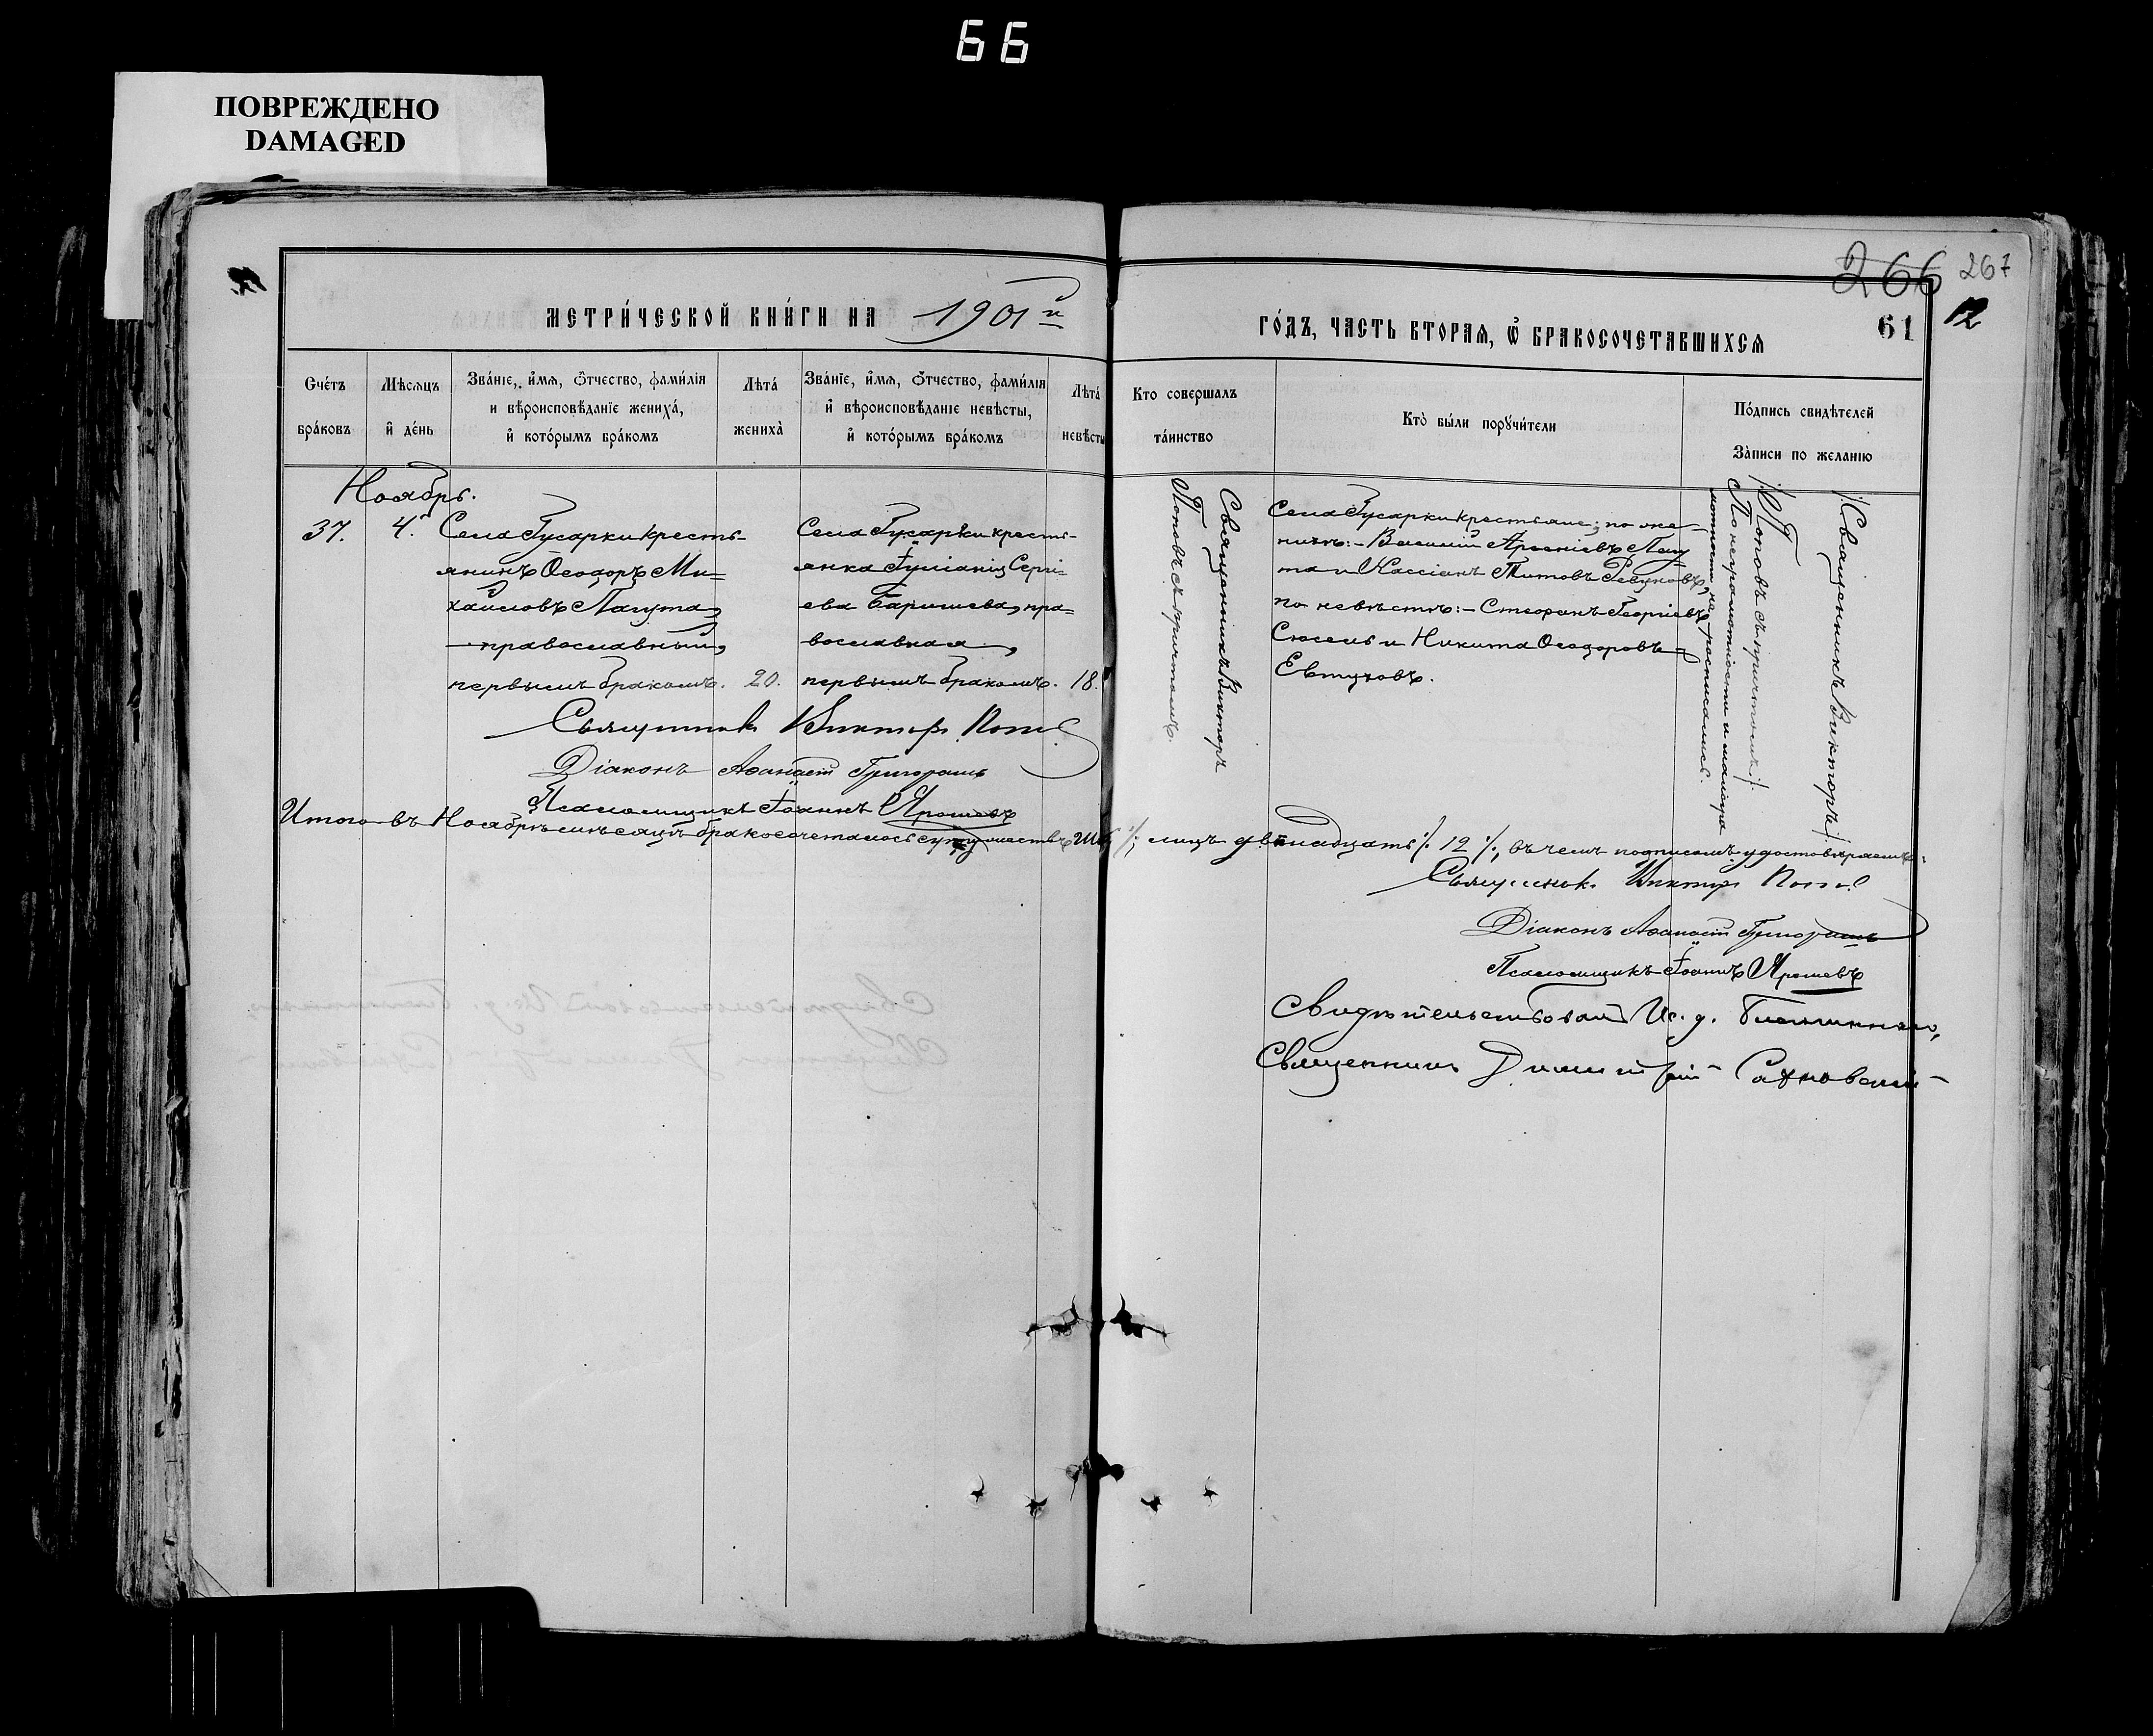 66
ПОВРЕЖДЕНО
DAMAGED
266 267
МЕТРИ́ЧЕСКОЙ КНИ́ГИ НА 1901й
ГО́ДЪ, ЧАСТЬ ВТОРАЯ, Ѿ БРАКОСОЧЕТАВШИХСЯ
61
12
Сче́тъ
бра́ковъ
Мѣсяцъ
и де́нь
Зва́нїе, и҆́мя, ѻ҆́тчество, фами́лїя
и вѣроисповѣ́данїе жениха́,
и҆ кото́рымъ бра́комъ
Лѣта́
жениха̀
Зва́нїе, и҆́мя, ѻ҆́тчество, фами́лїя
и҆ вѣроисповѣ́данїе невѣ́сты,
и҆ кото́рымъ бра́комъ
Лѣта́
невѣсты
Кто совершалъ
та́инство
Кто̀ бы́ли порꙋчи́тели
По́дпись свидѣ́телей
За̀писи по желанїю
Ноябрь.
37.
4.
Села Гусарки кресть-
янинъ Ѳеодоръ Ми=
хайловъ Лагута,
православный,
первымъ бракомъ.
20.
Села Гусарки кресть-
янка Іуліанія Сергі=
ева Баришева, пра=
вославная,
первымъ бракомъ.
18.
Священникъ Викторъ
Поповъ съ причтомъ.
Села Гусарки крестьяне; по же-
ниху:- Василій Арсеніевъ Лагу
та и Кассіанъ Титовъ Ревуновъ,
по невѣстѣ:- Стефанъ Георгіевъ
Сюсель и Никита Ѳеодоровъ
Евтуховъ.
/:Священникъ Викторъ
Поповъ съ причтомъ:/
По неграмотности и малогра
мотности не росписались.
Священникъ Викторъ Поповъ
Діаконъ Аѳанасій Григорашъ
Псаломщикъ Іоаннъ Ярошевъ
Итого въ Ноябрѣ мѣсяцѣ бракосочеталось супружествъ лицъ двѣнадцать /. 12 /., въ чемъ подписомъ удостовѣряемъ:
Священникъ Викторъ Поповъ
Діаконъ Аѳанасій Григорашъ
Псаломщикъ Іоаннъ Ярошевъ
Свидѣтельствовалъ Ис. д. Благочиннаго,
Священникъ Димитрій Сахновскій